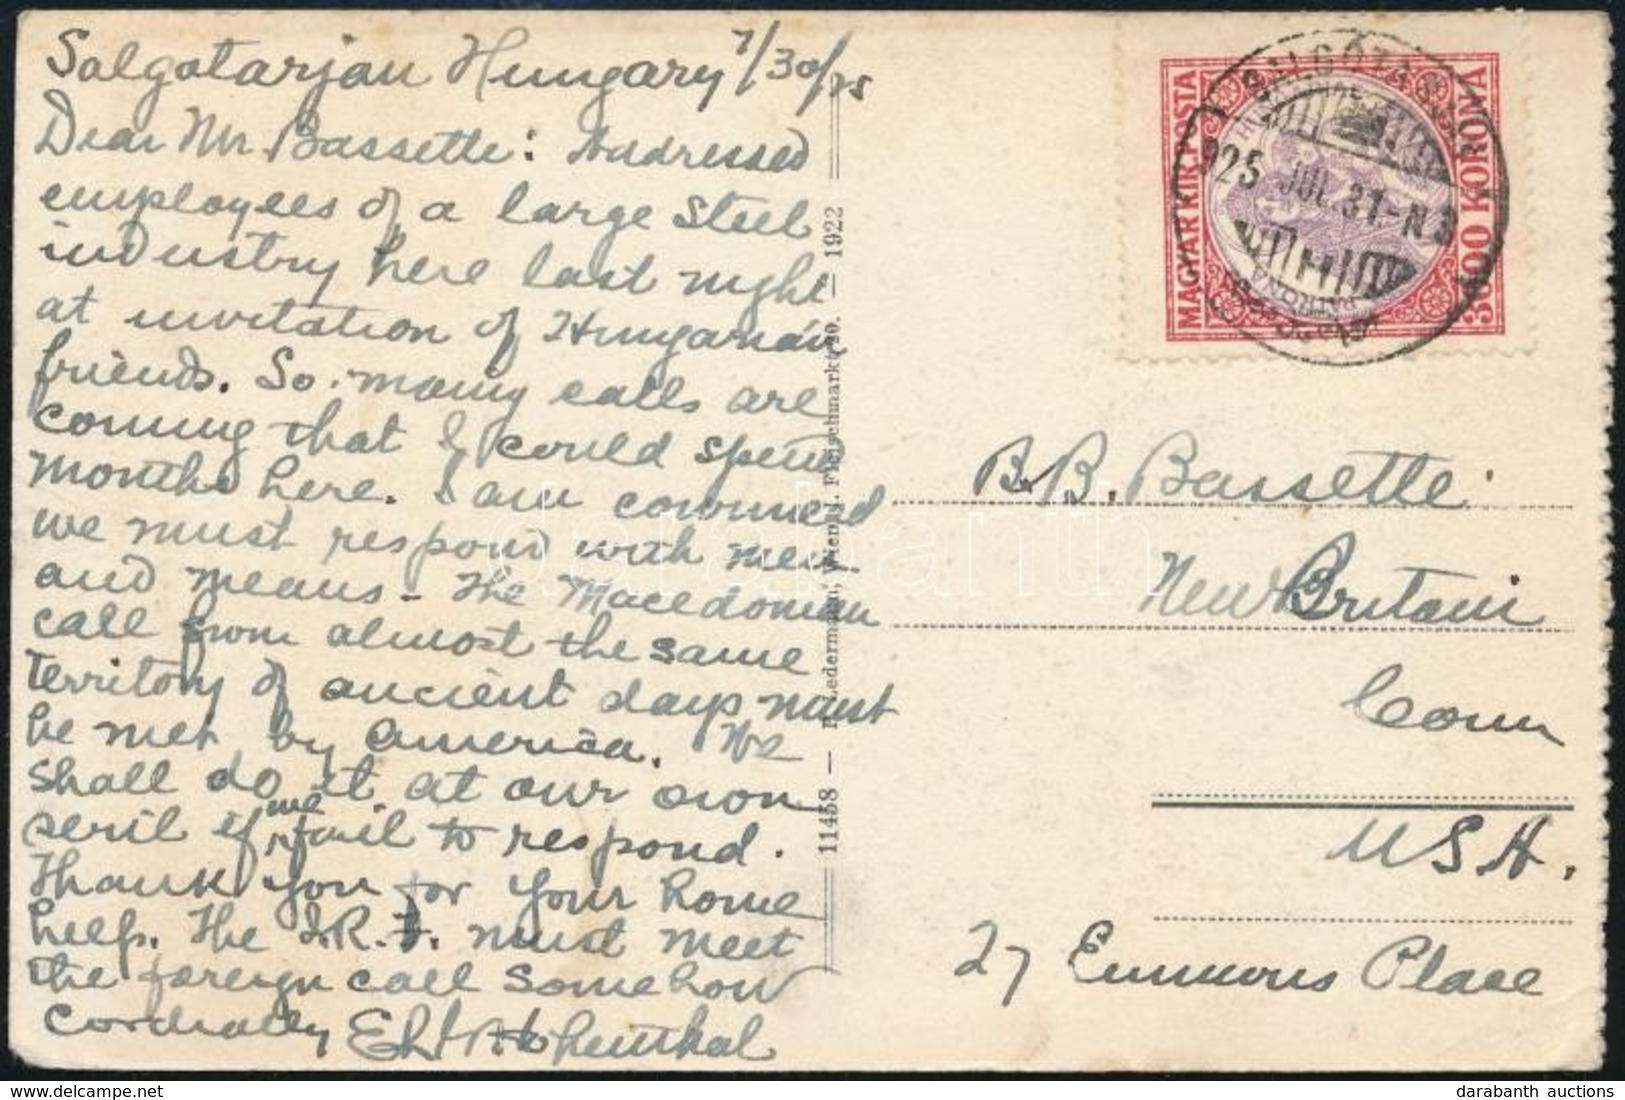 Salgotarjan Hungary 7/30/25
Dear Mr Bassette: Addressed
employees of a large steel
industry here last night
at invitation of Hungarian
friends. So many calls are
coming that I could spend
months here. I am convinced
we must respond with men
and means - The Macedonian
call from almost the same
territory of ancient days must
be met by America. We
shall do it at our own
peril if we fail to respond.
Thank you for your home
help. The I.R.F. must meet
the foreign call somehow
Cordially
11458 — Wien 1922
MAGYAR KIR. POSTA
3000 KORONA
925 JUL. 31.
B.B. Bassette
New Britain
Conn
U.S.A.
27 Emmons Place
darabanth
darabanth auctions
delcampe.net